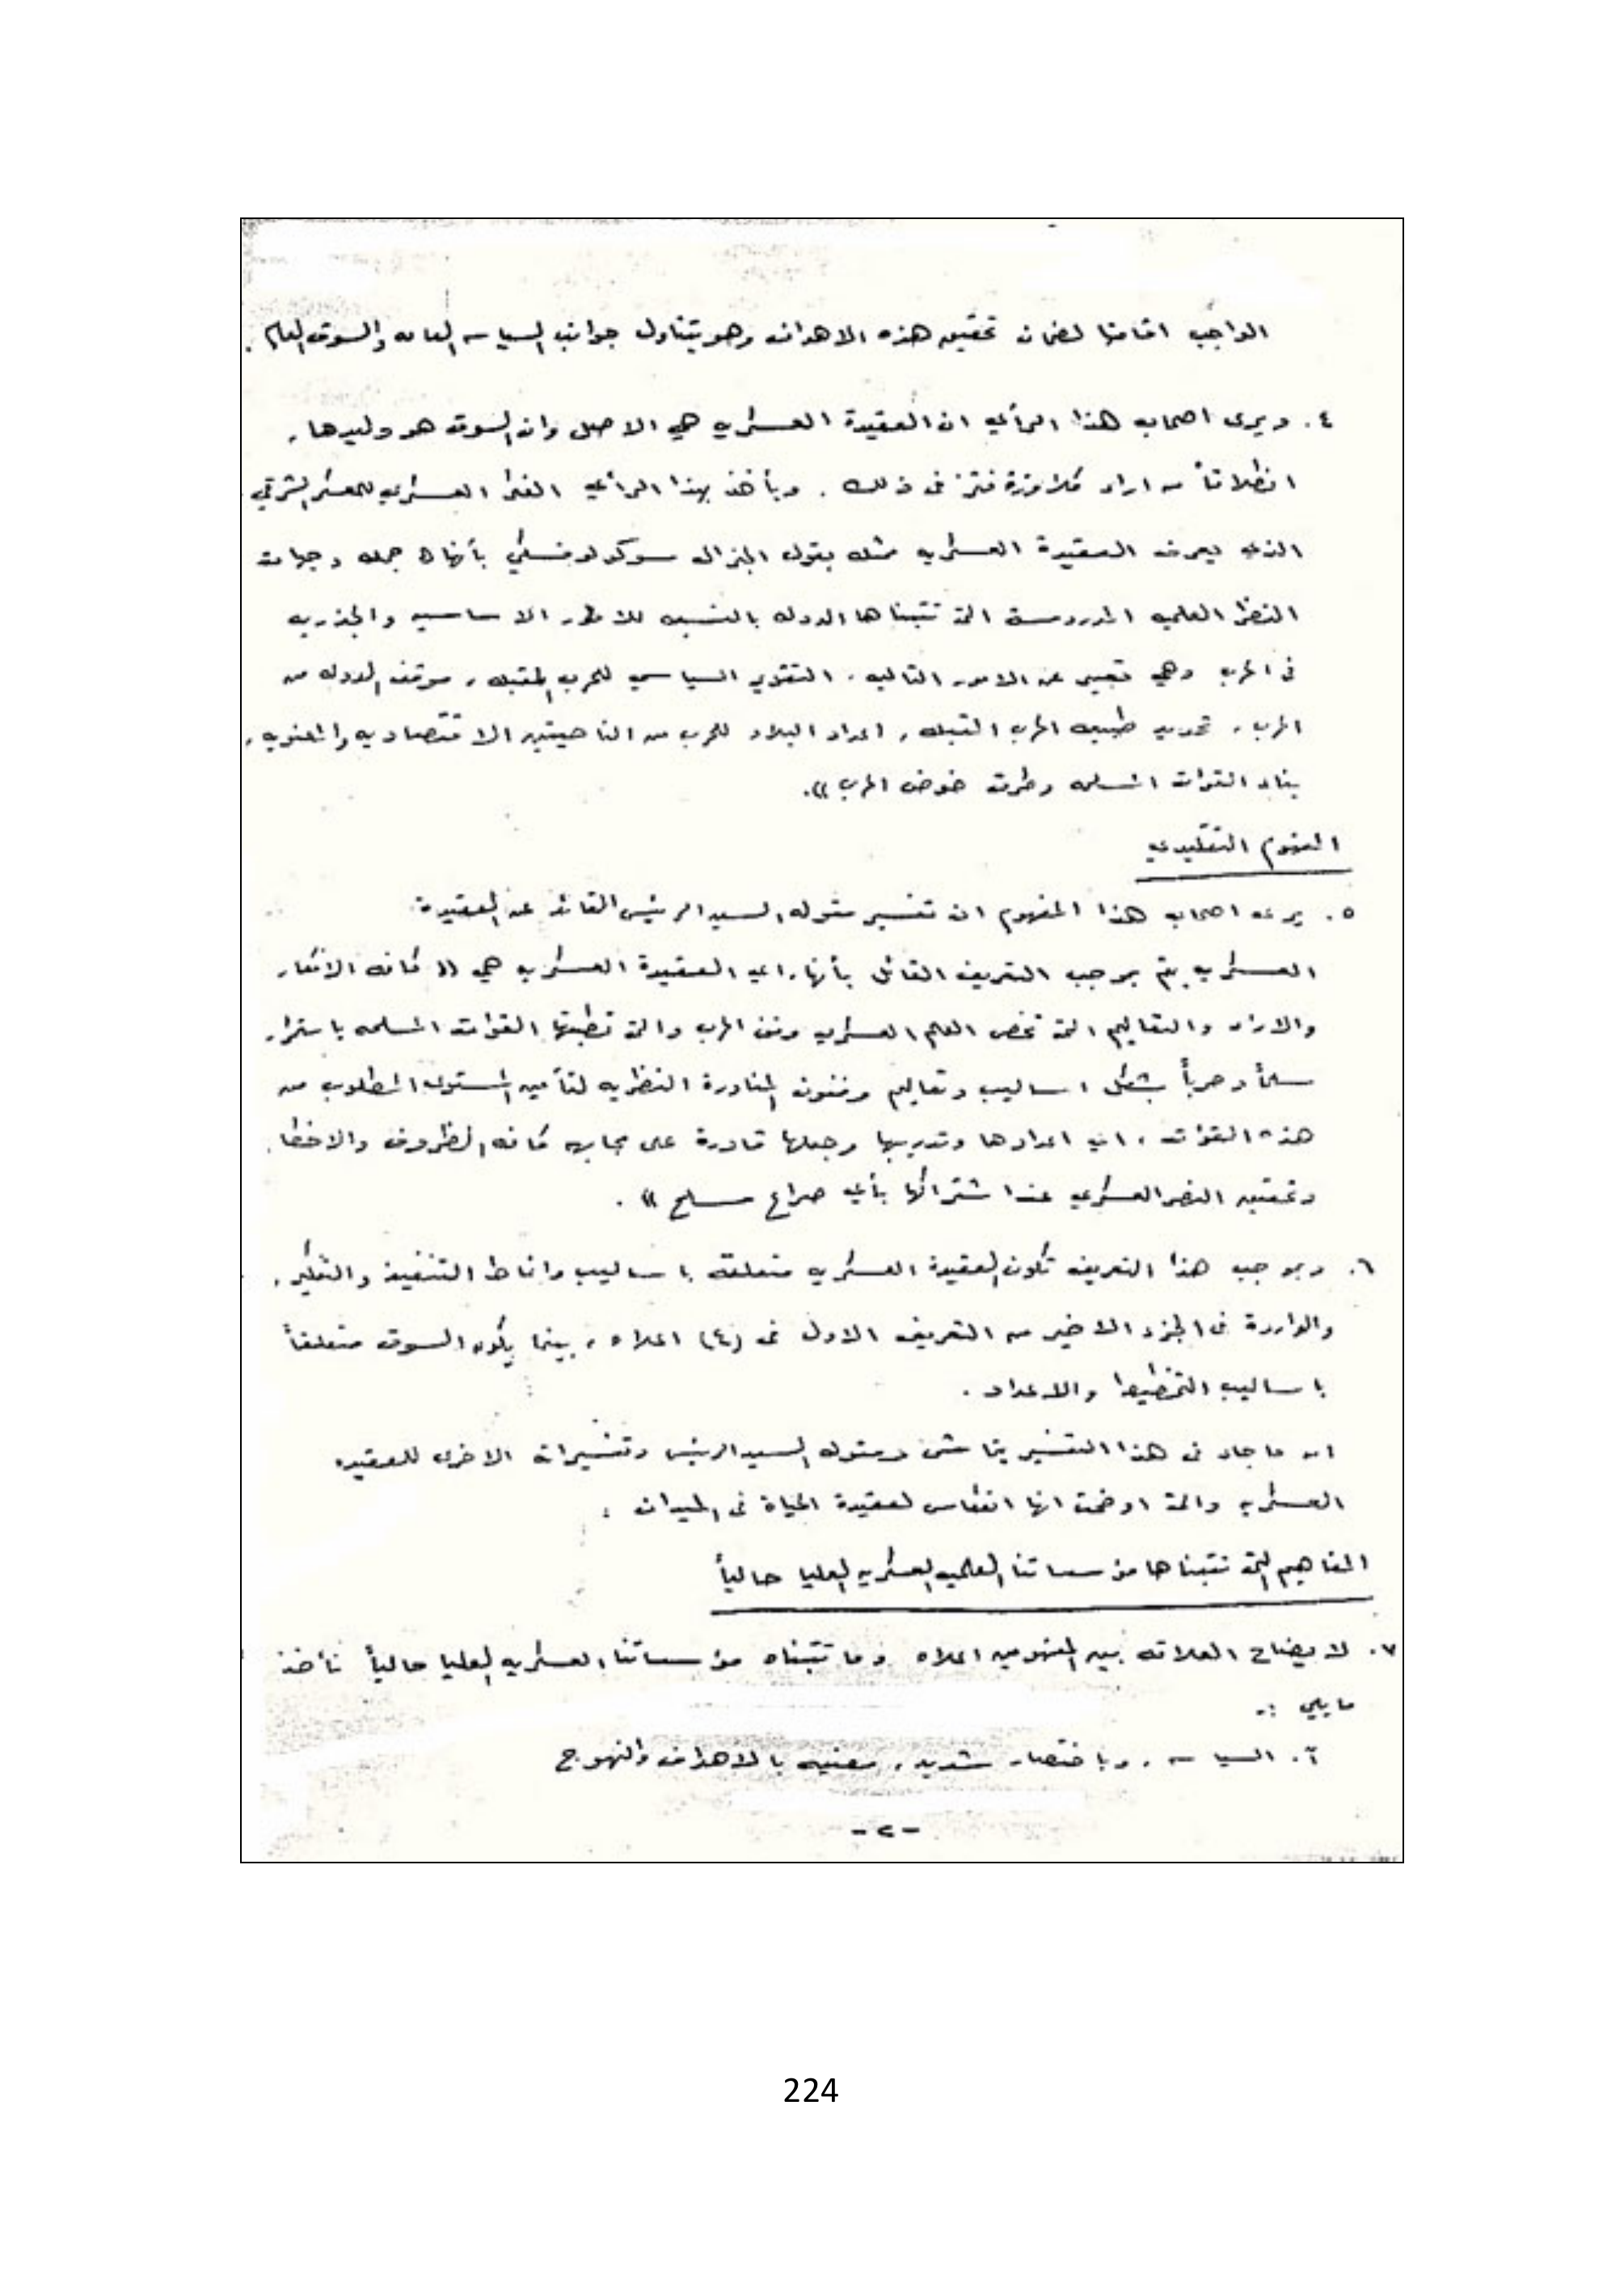 الواجب اقامتها لضمان تحقيق هذه الاهداف وهو يتناول جوانب السياسه العامه والسوق العام .
٤. ويرى اصحاب هذا الرأي ان العقيدة العسكريه هي الاصل وان السوق هو وليدها ،
انطلاقاً من اراء كلاوزفتز في ذلك . ويأخذ بهذا الرأي الفكر العسكري للمعسكر الشرقي
الذي يعرف العقيدة العسكريه مثله بقول الجنرال سوكولوفسكي بأنها (( جمله وجهات
النظر العلميه المدروسة التي تتبناها الدوله بالنسبه للامور الاساسيه والجذريه
في الحرب وهي تعبير عن الامور التاليه ، التقدير السياسي للحرب المقبله ، موقف الدوله من
الحرب ، تحديد طبيعه الحرب المقبله ، اعداد البلاد للحرب من الناحيتين الاقتصاديه والمعنويه ،
بناء القوات المسلحه وطرق خوض الحرب )).
المفهوم التقليدي
٥. يرى اصحاب هذا المفهوم ان تفسير مقوله السيد الرئيس القائد عن العقيدة
العسكريه يتم بموجب التعريف القائل بأنها ، اي العقيدة العسكريه هي (( كافه الافكار
والاراء والتعاليم التي تخص العلم العسكري وفن الحرب والتي تطبقها القوات المسلحه باستمرار
سلماً وحرباً بشكل اساليب وتعاليم وفنون المناورة النظريه لتأمين المستوى المطلوب من
هذه القوات ، اي اعدادها وتدريبها وجعلها قادرة على مجابهه كافه الظروف والاخطار
وتحقيق النصر العسكري عند اشتراكها بأي صراع مسلح )) .
٦. وبموجب هذا التعريف تكون العقيدة العسكريه متعلقة باساليب وانماط التنفيذ والتفكير ،
والواردة في الجزء الاخير من التعريف الاول في (٤) اعلاه ، بينما يكون السوق متعلقاً
باساليب التخطيط والاعداد .
ان ما جاء في هذا التفسير يتماشى ومقوله السيد الرئيس وتفسيرات الاخرى للعقيده
العسكريه والتي اوضحت انها انعكاس لعقيدة الحياة في الميدان :
المفاهيم التي تتبناها مؤسساتنا العلميه العسكريه العليا حالياً
٧. لايضاح العلاقه بين المفهومين اعلاه وما تتبناه مؤسساتنا العسكريه العليا حالياً نأخذ
مايلي :-
آ. السياسه ، وباختصار شديد ، معنيه بالاهداف والنهوج
-٢-
224